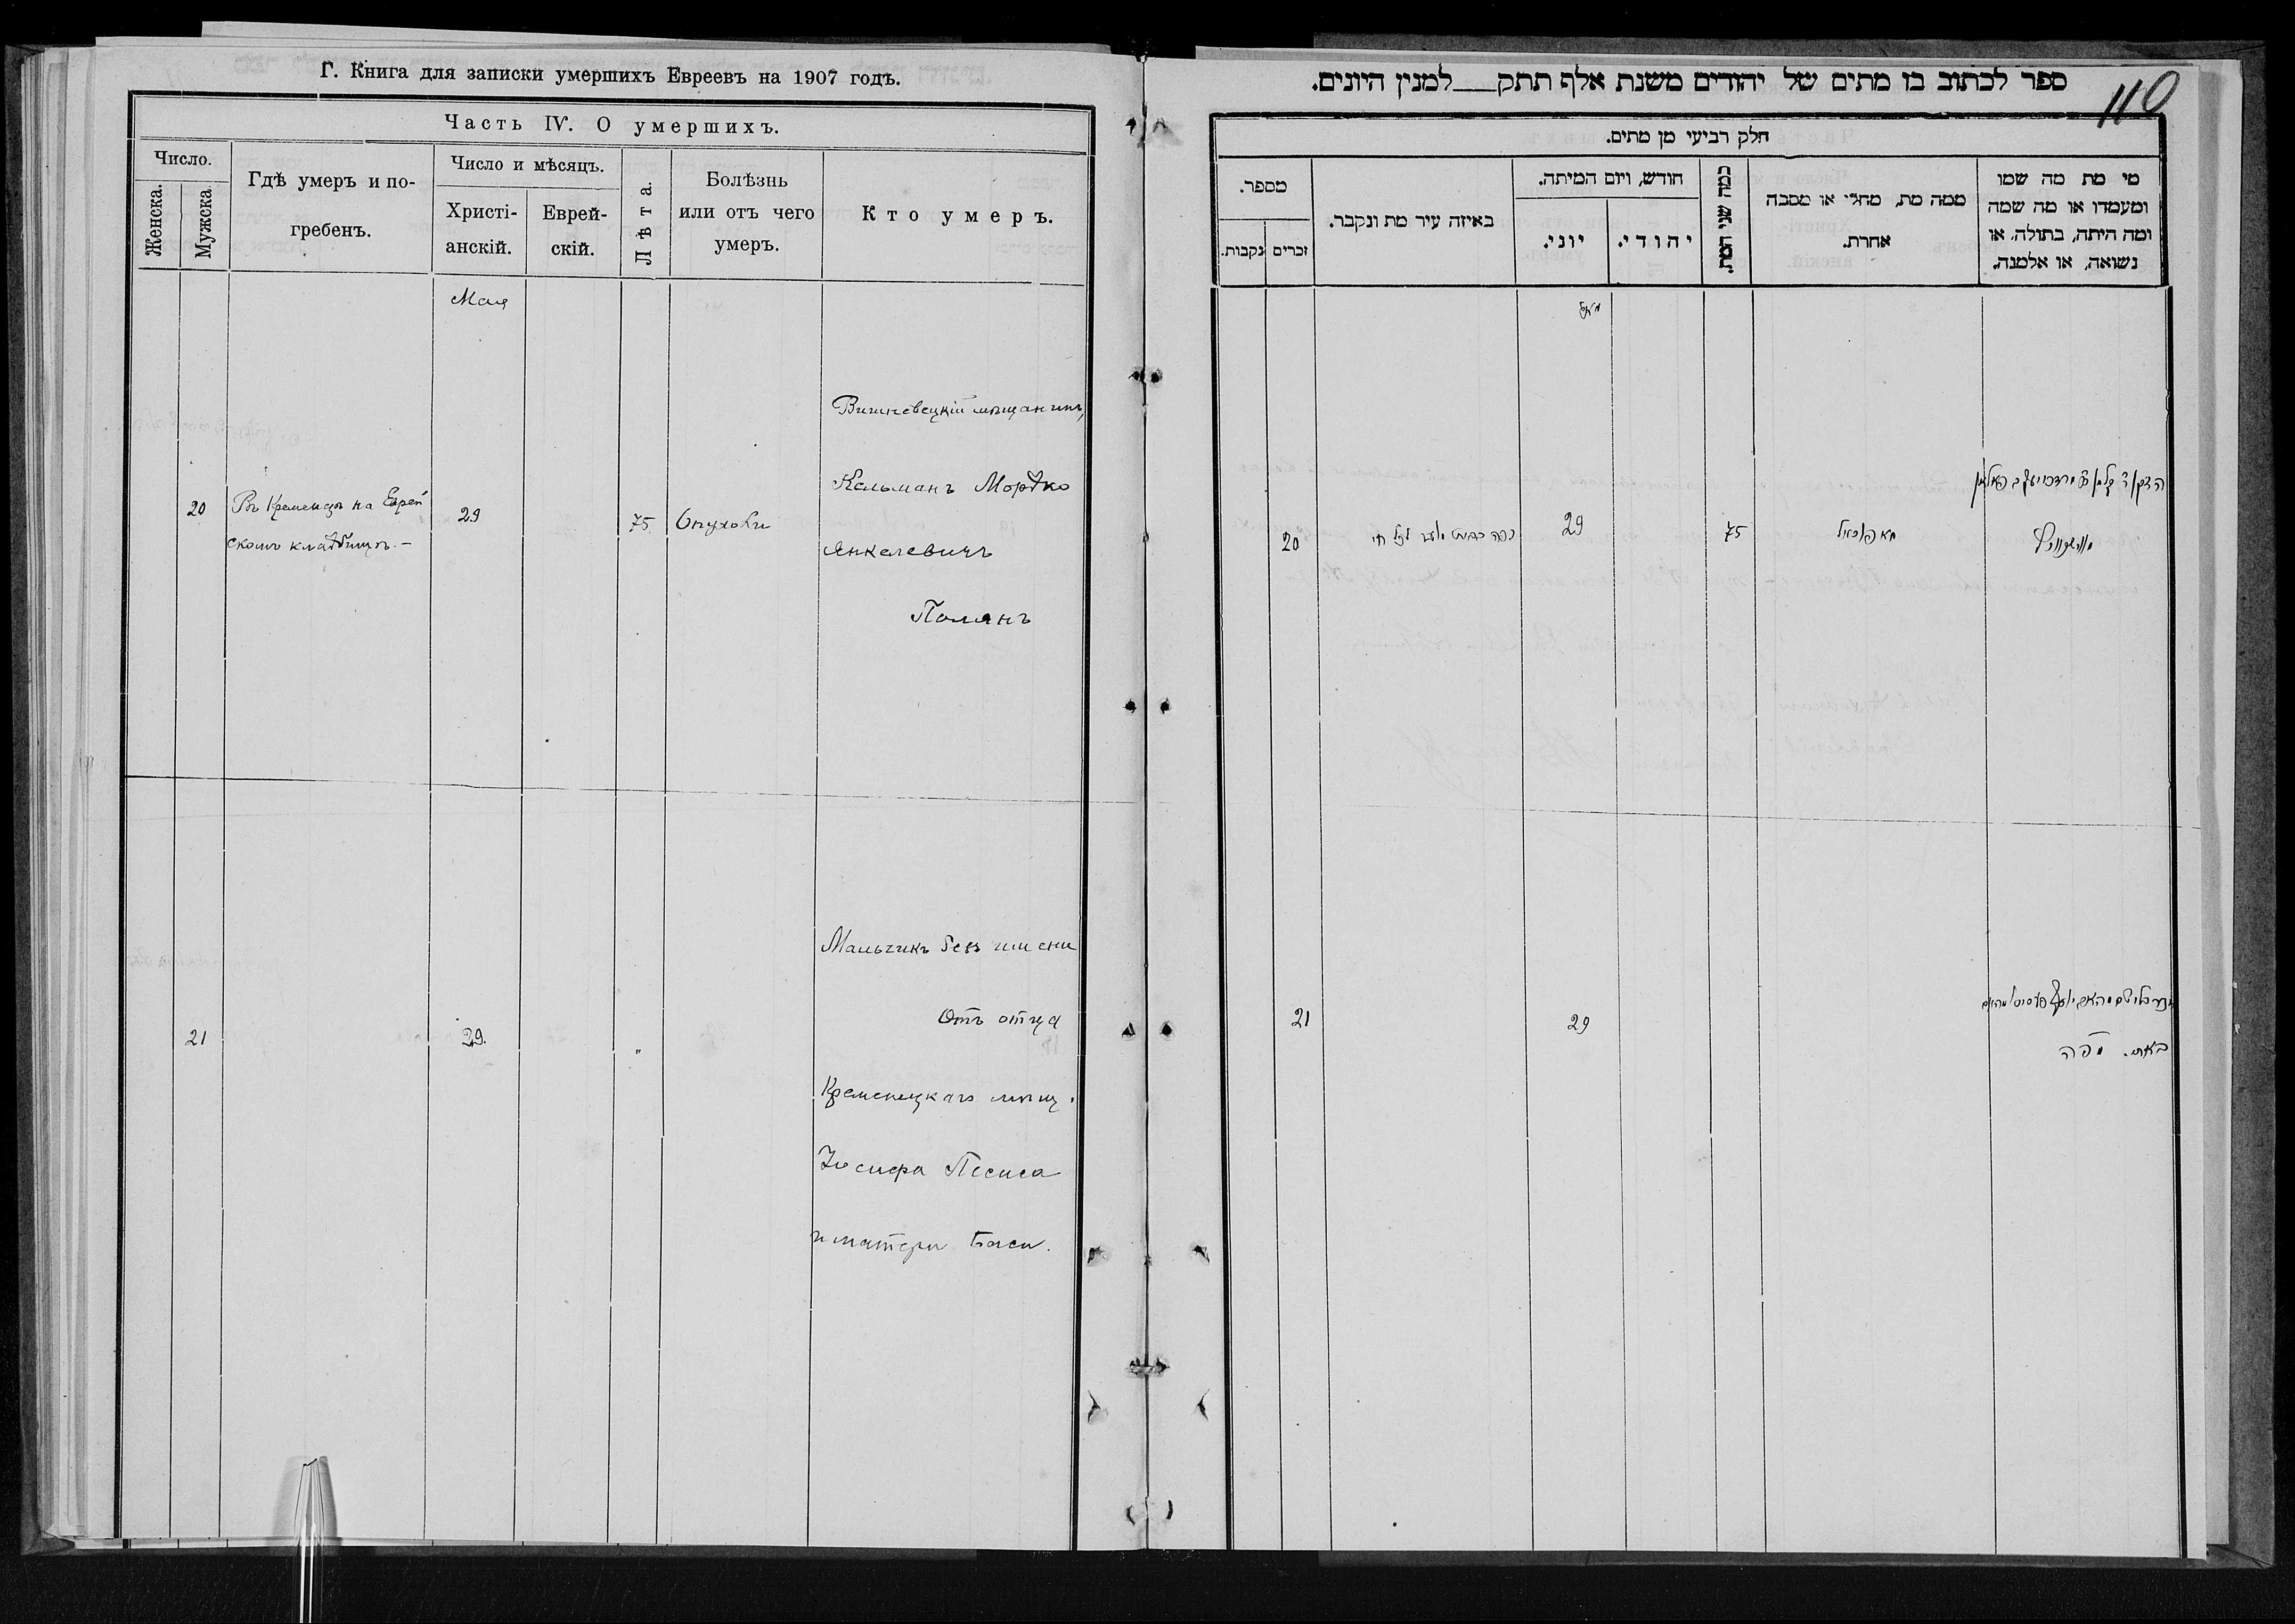 Г. Книга для записи умершихъ Евреевъ на 1907 годъ.
Часть IV. О умершихъ.
Число.
Женска.
Мужска.
Гдѣ умеръ и по-
гребенъ.
Число и мѣсяцъ.
Христі-
анскій.
Еврей-
скій.
Лѣта.
Болѣзнь
или отъ чего
умеръ.
Кто умеръ.
Мая
20
Въ Кременцѣ на Еврей
скомъ кладбищѣ.-
29
75
Опухоли
Вишневецкій мѣщанинъ,
Кельманъ Мордко
Янкелевичъ
Полянъ
21
29.
"
Мальчикъ безъ имени
Отъ отца
Кременецкаго мѣщ.
Іосифа Песиса
и матери Баси.
ספר לכתוב בו מתים של יהודים משנת אלף תתק למנין היונים.
110
חלק רביעי מן מתים.
מספר.
זכרים
נקבות.
באיזה עיר מת ונקבר.
חודש, ויום המיתה.
יוני.
יהודי.
כמה שני המת.
ממה מת, מחלי או מסבה
אחרת.
מי מת מה שמו
ומעמדו או מה שמה
ומה היתה, בתולה, או
נשואה, או אלמנה.
מאי
20
29
75
21
29